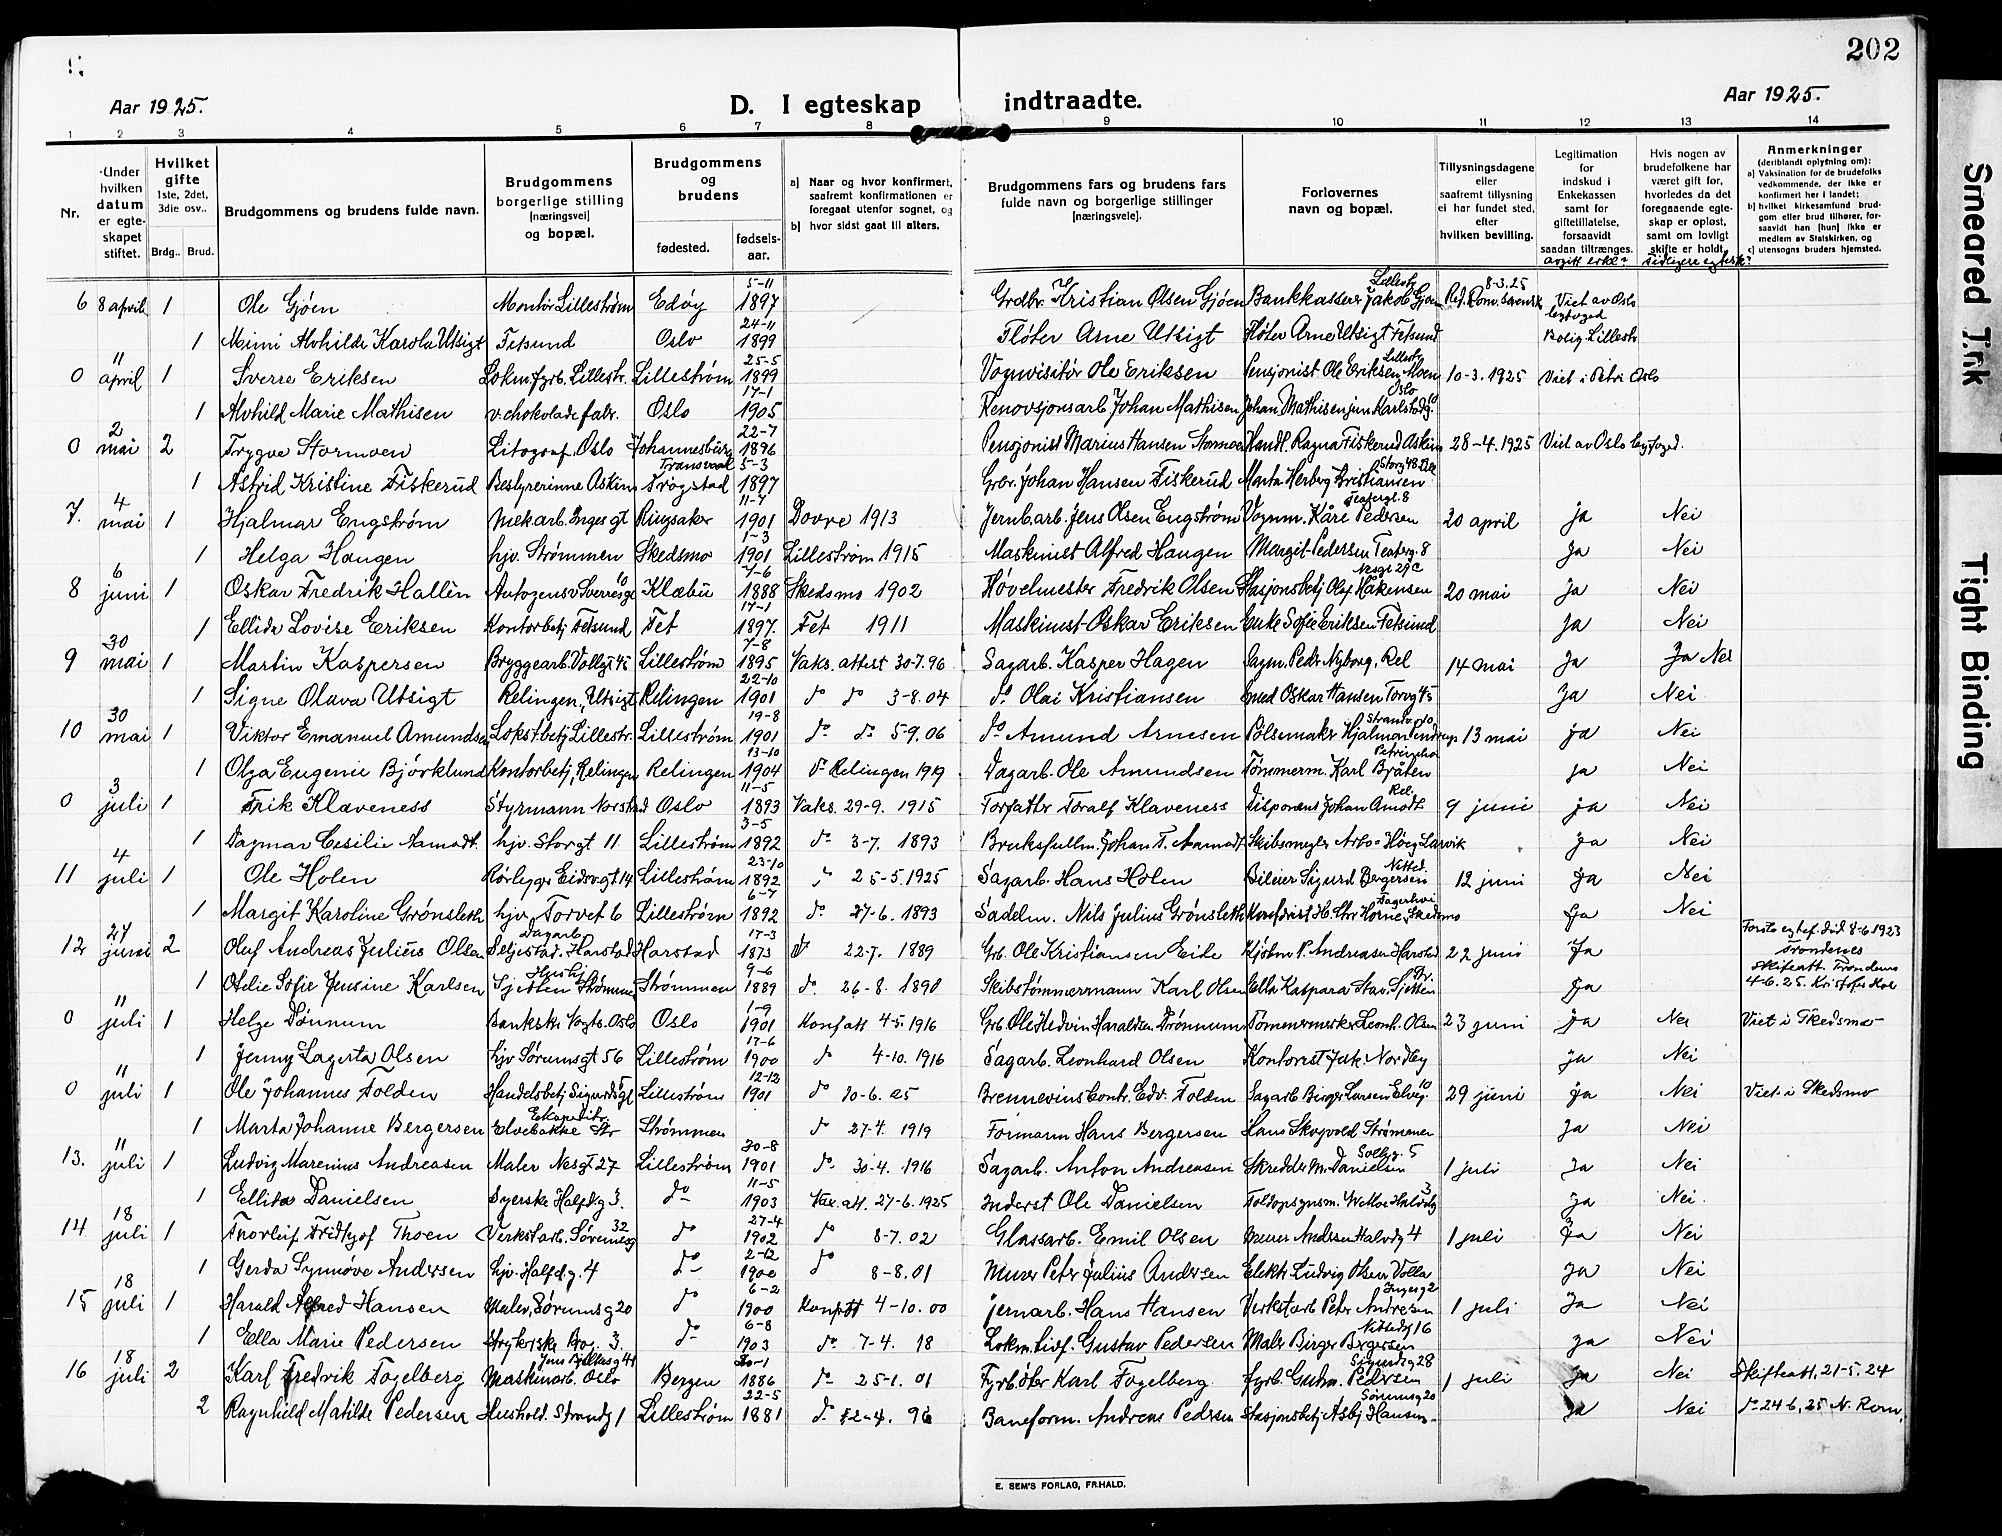 202
Aar 1925.
D. I egteskap indtraadte.
Aar 1925.
1 2 3 4 5 6 7 8 9 10 11 12 13 14
Nr.
Under hvilken datum er egteskapet stiftet.
Hvilket gifte 1ste, 2det, 3die osv..
Brdg.. Brud.
Brudgommens og brudens fulde navn.
Brudgommens borgerlige stilling [næringsvei] og bopæl.
Brudgommens og brudens
fødested. fødselsaar.
a) Naar og hvor konfirmert, saafremt konfirmationen er foregaat utenfor sognet, og
b) hvor sidst gaat til alters.
Brudgommens fars og brudens fars fulde navn og borgerlige stillinger [næringsveie].
Forlovernes navn og bopæl.
Tillysningsdagene eller saafremt tillysning ei har fundet sted, efter hvilken bevilling.
Legitimation for indskud i Enkekassen samt for giftetillatelse, forsaavidt saadan tiltrænges.
Hvis nogen av brudefolkene har været gift før, hvorledes da det foregaaende egteskap er opløst, samt om lovlig skifte er holdt.
Anmerkninger (deriblandt oplysning om):
a) Vaksination for de brudefolks vedkommende, der ikke er konfirmert her i landet;
b) hvilket kirkesamfund brudgom eller brud tilhører, forsaavidt han [hun] ikke er medlem av Statskirken, og
c) utensogns bruders hjemsted.
6 8 april 1 Ole Gjöen Montör Lilleström Edöy 5-11 1897 Grdbr. Kristian Olsen Gjöen Bankkasserer Jakob Gjöen Lillestr 8-3.25 Viet av Oslo byfoged
1 Mimi Alvhilde Karola Utsigt Fetsund Oslo 24-11 1899 Flöter Arne Utsigt Flöter Arne Utsigt Fetsund Bolig. Lillestr
0 11 april 1 Sverre Eriksen Lokm.fyrb. Lillestr. Lilleström 25-5 1899 Vognvisitör Ole Eriksen Pensjonist Ole Eriksen Moen Lillestr 10-3.1925 Viet i Petri Oslo
1 Alvhild Marie Mathisen v. chokoladefabr. Oslo 17-1 1905 Renovsjonsarb Johan Mathisen Johan Mathisen jun Karlstadg. 10 Oslo
0 2 mai 2 Trygve Stormoen Litograf. Oslo Johannesburg Transvaal 22-7 1896 Pensjonist Marius Hansen Stormoen Handl. Ragna Fiskerud Askim 28-4.1925 Viet av Oslo byfoged.
1 Astrid Kristine Fiskerud Bestyrerinne Askim Trögstad 5-3 1897 Grbr. Johan Hansen Fiskerud Marta Herberg Kristiansen
7. 4 mai 1 Hjalmar Engström Niekarb. Inges gt Ringsaker 11-7 1901 Dovre 1913 Jernb.arb. Jens Olsen Engström Vognm. Kåre Pedersen Teatergt. 8 20 april ja Nei
1 Helga Haugen hjv. Strömmen Skedsmo 1-3 1901 Lilleström 1915 Maskinist Alfred Haugen Margit Pedersen Teaterg. 8 Ja Nei
8 6 juni 1 Oskar Fredrik Hallèn Autogensv Sverresgt 10 Klæbu 7-6 1888 Skedsmo 1902 Hövelmester Fredrik Olsen Stasjonsbetj Olaf Håkensen Nesgt 29c 20 mai Ja Nei
1 Ellida Lovise Eriksen Kontorbetj Fetsund Fet 17-1 1897. Fet 1911 Maskinist Oskar Eriksen Enke Sofie Eriksen Fetsund Ja Nei
9 30 mai 1 Martin Kaspersen Bryggearb. Vollgt 45 Lilleström 7-8 1895 Vaks. attest 30-7.96 Sagarb. Kasper Hagen Sagm. Peder Nyborg, Rel 14 mai Ja Ja Nei
1 Signe Olava Utsigt Relingen, Utsigt Relingen 22-10 1901 do do 3-8.04 do. Olai Kristiansen smed Oskar Hansen Torvg 45 Ja Nei.
10 30 mai 1 Viktor Emanuel Amundsen Lokstbetj Lillestr. Lilleström 19-8 1901 do do 5-9.06 do Amund Arnesen Pölsemaker Hjalmar Strandv. 10 13 mai ja Nei
1 Olga Eugenie Björklund Kontorbetj, Relingen Relingen 13-10 1904 do Relingen 1919 Dagarb. Ole Amundsen Tömmerm. Karl Bjåten ja Nei
0 3 juli 1 Erik Klaveness Styrmann Norstrand Oslo 11-5 1893 Vaks. 29-9. 1915 Forfatter Toralf Klaveness Disponens Johan Amodt Rel. 9 juni ja Nei
1 Dagmar Cesilie Aamodt. hjv. Storgt 11 Lilleström 3-5 1892 do 3-7. 1893 Bruksfullm. Johan T. Aamodt Skibsmegler Arbo-Höeg Larvik Ja Nei
11 4 juli 1 Ole Holen Rörlegger Eidsvgt 14 Lilleström 23-10 1892 do 25-5.1925 Sagarb. Hans Holen Bileier Sigurd Bergersen Nitted. 12 juni Ja Nei
1 Margit Karoline Grönsleth hjv Torvet 6 Lilleström 6-7 1892 do. 27-6. 1893 Sadelm. Nils Julius Grönsleth Skedsmo Ja Nei
12 27 juni 2 Oluf Andreas Julius Olsen Dagarb. Seljestad. Harstad Harstad 17-3 1873 do 22-7. 1889 Grb. Ole Kristiansen Eide Kjöbm P. Andreasen Harstad 22 juni Ja Forste egtef. död 8-6 1923 Trondenes
1 Otelie Sofie Jensine Karlsen Husbj Sjetten Strömmen Strömmen 9-6 1889 do. 26-8. 1890 Skibstömmermann Karl Olsen Ella Kaspara Stav. Sjetten Ja Skifteatt. Trondenes 4-6.25.
0 11 juli 1 Helge Dönnum Bankskr Vogts. Oslo Oslo 1-9 1901 Konfatt 4-5.1916 Grb. Ole Hedvin Haraldsen Drönnum Tömmermerker Leonh. Olsen 23 juni Ja Nei Viet i Skedsmo
1 Jenny Lagerta Olsen hjv Sörumsgt 56 Lilleström 17-6 1900 do 4-10. 1916 Sagarb. Leonhard Olsen Kontorist Jak. Nordby ja Nei
0 11 juli 1 Ole Johannes Folden Handelsbetj Sigurdsgt Lilleström 12-12 1901 do 20-6. 05 Brennevinskontr. Edv. Folden Sagarb Birger Larsen Elveg. 10 29 juni Ja Nei Viet i Skedsmo
1 Marta Johanne Bergersen Ekspeditr Elvebakke Str Strömmen do 27-4. 1919 Formann Hans Bergersen Hans Skogvold Strömmen Ja Nei
13. 11 juli 1 Ludvig Marenius Andreasen Maler Nesgt 27 Lilleström 20-8 1901 do 30-4. 1916 Sagarb. Anton Andreasen Skredder M. Danielsen Solbg. 5 1 juli Ja Nei
1 Ellida Danielsen Syerske Halfdg 3. do 11-5 1903 Vax att. 27-6.1925 Inderst Ole Danielsen Ja Nei.
14 18 juli 1 Thorleif Fridtjof Thoen Verkst.arb. Sörumsg 32 do 27-4 1902 do 8-7.02 Glassarb. Emil Olsen Murer Andersen Halvdg 4 1 juli Ja Nei
1 Gerda Synnöve Andersen hjv. Halfd.g. 4 do 2-12 1900 do 8-8.01 Murer Peter Julius Andersen Elektr Ludvig Olsen Volla Ja Nei
15 18 juli 1 Harald Alfred Hansen Maler, Sörumsg 20 do 6-2 1900 Konfatt 4-10.00 jernarb. Hans Hansen Verkstarb Peter Andresen Ingesg 2 1 juli Ja Nei
1 Ella Marie Pedersen Strykerske Bro. 3. do 6-8 1903 do. 7-4. 18 Lokm. Gustav Pedersen Maler Birger Bergersen Nittedg 16 ja Nei
16 18 juli 2 Karl Fredrik Fogelberg Maskinarb. Oslo Jens Bjelkesg 41 Bergen 30-1 1886 do 25-1. 01 Fyrböter Karl Fogelberg fyrb. Gudm. Pedersen Sigurdsg 28 1 juli Ja Nei Skifteatt. 21-5.24
2 Ragnhild Matilde Pedersen Hushold. Strandg 1 Lilleström 22-5 1881 do 12-4. 96 Baneform. Andreas Pedersen Stasjonsbetj Asbj Hansen Sörumsg 20 Ja Nei do 24 6, 25 N. Rom.
E. SEM'S FORLAG, FR.HALD.
Smeared Ink
Tight Binding